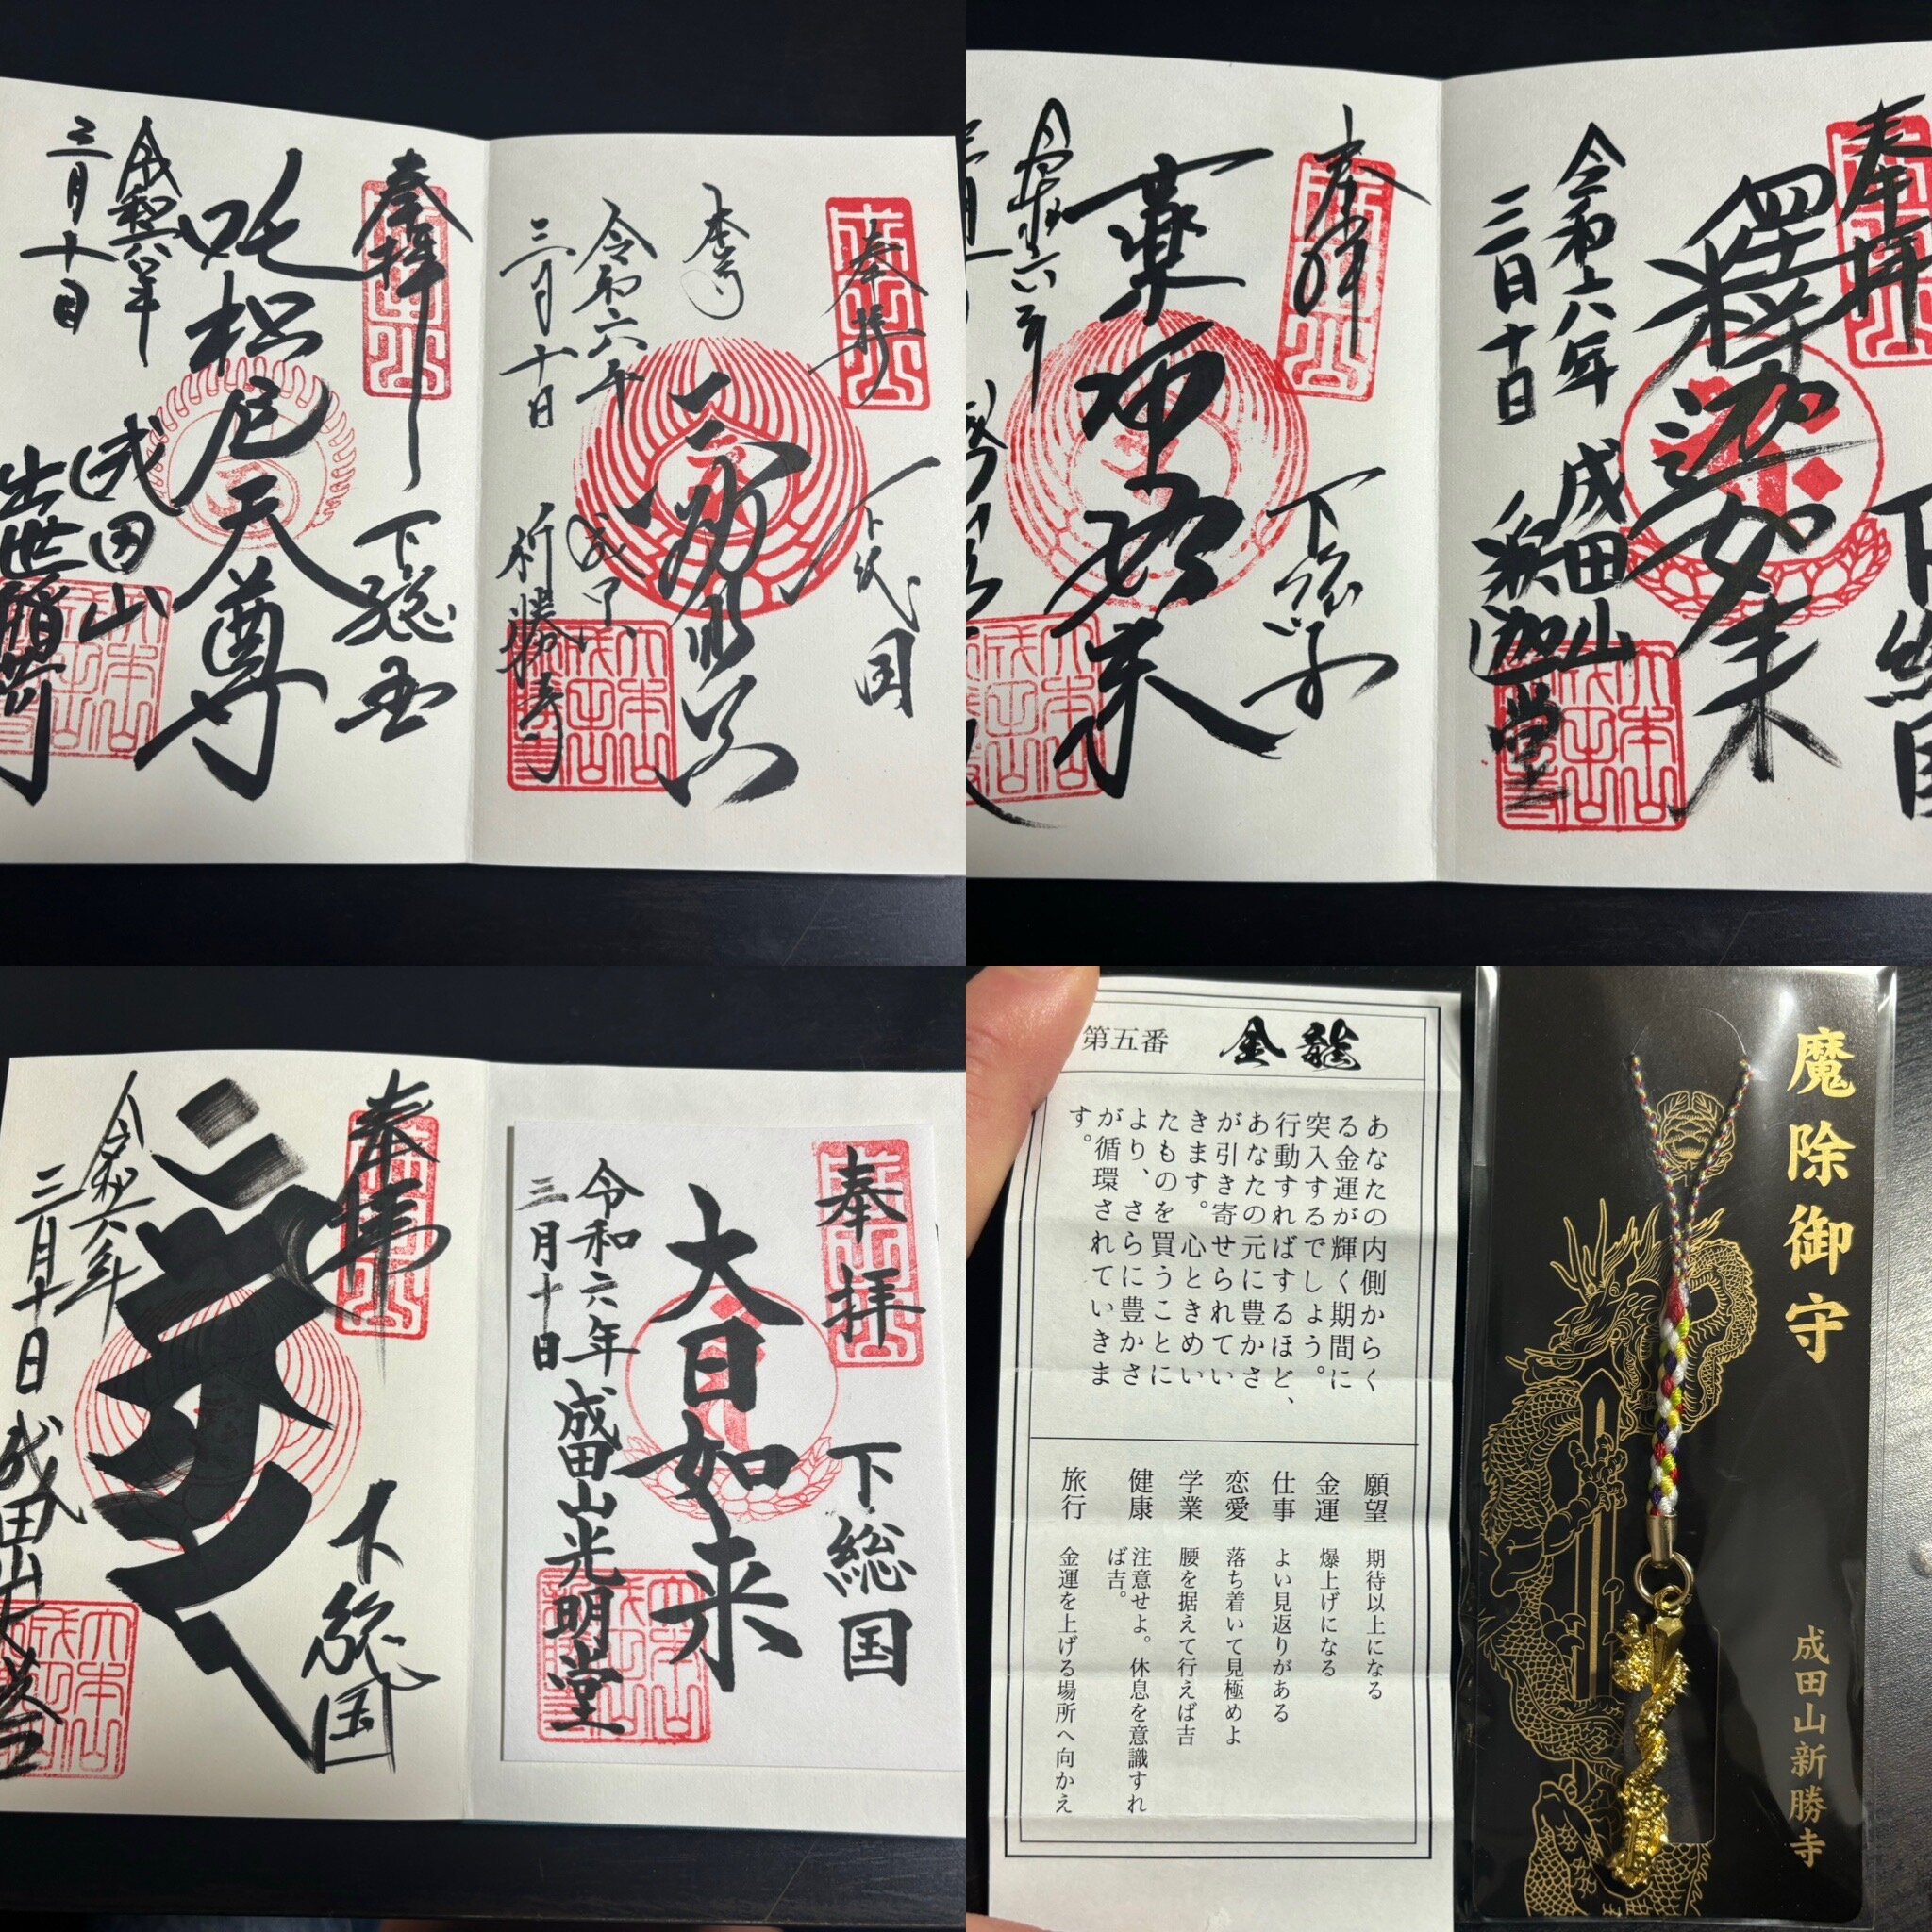 奉拝
下総国
吒枳尼天尊
令和六年
三月十日
成田山
出世稲荷
奉拝
下総国
本尊
不動明王
令和六年
三月十日
成田山
新勝寺
奉拝
下総国
薬師如来
令和六年
奉拝
下総国
釋迦如来
令和六年
三月十日
成田山
釈迦堂
奉拝
下総国
令和六年
三月十日
成田山大塔
奉拝
下総国
大日如来
令和六年
三月十日
成田山光明堂
金龍
第五番
あなたの内側からく
る金運が輝く期間に
突入するでしょう。
行動すればするほど、
あなたの元に豊かさ
が引き寄せられてい
きます。心ときめい
たものを買うことに
より、さらに豊かさ
が循環されていきま
す。
願望 期待以上になる
金運 爆上げになる
仕事 よい見返りがある
恋愛 落ち着いて見極めよ
学業 腰を据えて行えば吉
健康 注意せよ。休息を意識すれ
ば吉。
旅行 金運を上げる場所へ向かえ
魔除御守
成田山新勝寺